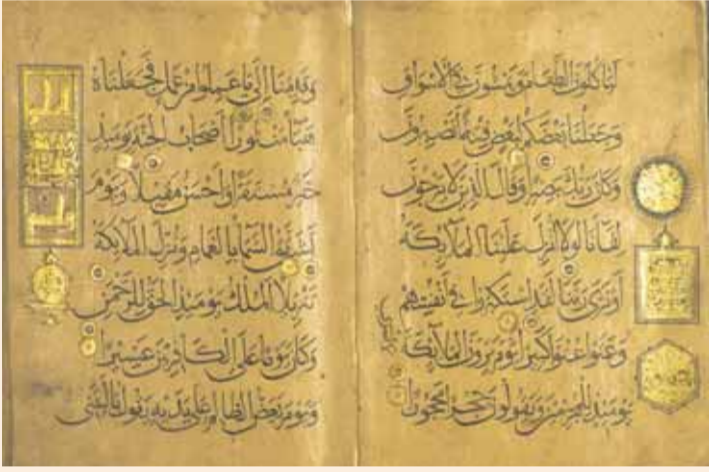 ليأكلون الطعام ويمشون في الأسواق
وجعلنا بعضكم لبعض فتنة أتصبرون
وكان ربك بصيرا وقال الذين لا يرجون
لقاءنا لولا أنزل علينا الملائكة
أو نرى ربنا لقد استكبروا في أنفسهم
وعتوا عتوا كبيرا يوم يرون الملائكة
يومئذ للمجرمين ويقولون حجرا محجورا
وقدمنا إلى ما عملوا من عمل فجعلناه
هباء منثورا أصحاب الجنة يومئذ
خير مستقرا وأحسن مقيلا ويوم
تشقق السماء بالغمام ونزل الملائكة
تنزيلا الملك يومئذ الحق للرحمن
وكان يوما على الكافرين عسيرا
ويوم يعض الظالم على يديه يقول يا ليتني